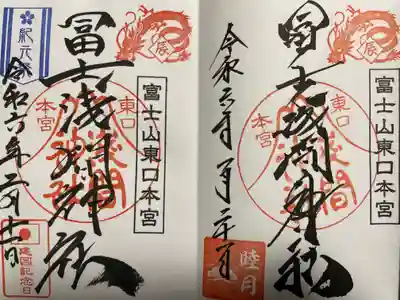 辰
富士山東口本宮
冨士浅間神社
東口
本宮
浅間
紀元
令和六年二月十一日
建国記念日
辰
富士山東口本宮
冨士浅間神社
東口
本宮
浅間
令和六年一月二十一日
睦月